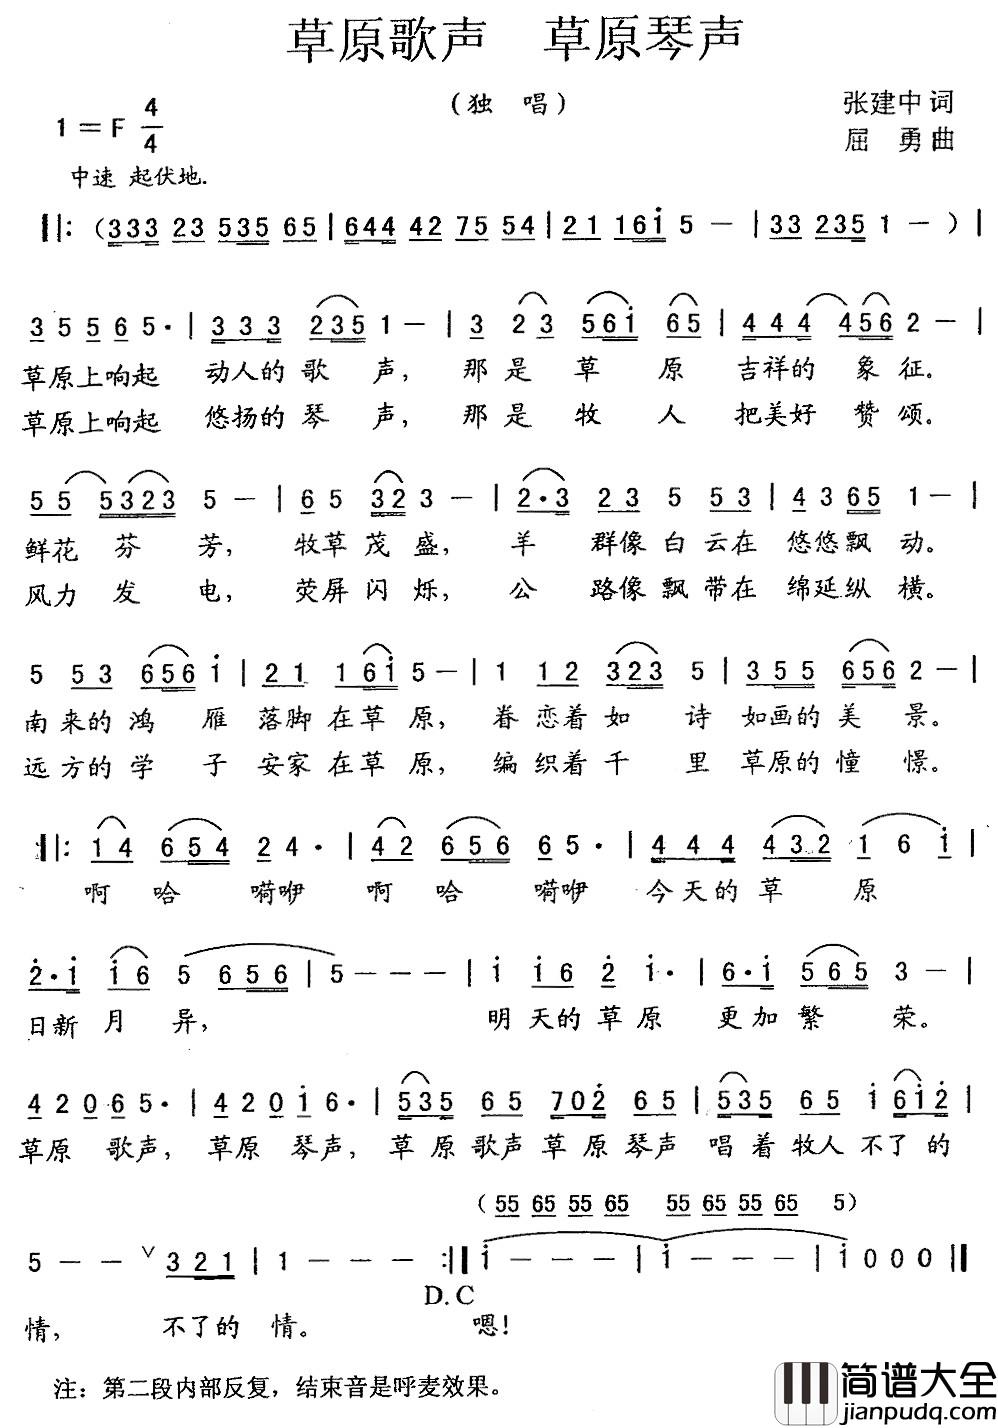 草原歌声 草原琴声
(独 唱)
1=F 4/4
张建中 词
屈 勇 曲
中速 起伏地.
‖:(333 23 535 65|644 42 75 54|21 161̇ 5 －|33 235 1 －)|
3 5 5 6 5·|333 235 1－|3 23 561̇ 65|444 456 2－|
草原上响起 动人的歌 声, 那是草 原 吉祥的 象 征。
草原上响起 悠扬的琴 声, 那是牧 人 把美好 赞 颂。
55 5323 5－|65 323－|2·3 23 5 53|43651－|
鲜花 芬 芳, 牧草茂 盛, 羊 群像白云在 悠悠飘 动。
风力 发 电, 荧屏闪 烁, 公 路像飘带在 绵延纵 横。
5 53 656 1̇|21 161̇ 5－|1 12 323 5|355 656 2－|
南 来的 鸿 雁 落脚在草 原, 眷 恋着如 诗 如画的美 景。
远 方的 学 子 安家在草 原, 编 织着千 里 草原的憧 憬。
‖:14 654 24·|42 656 65·|444 432 1 6 1̇|
啊 哈 嗬咿 啊 哈 嗬咿 今天的草 原
2̇·1̇ 1̇6 5 656|5－－－|1̇ 1̇6 2̇ 1̇·|6·1̇ 565 3－|
日新 月 异, 明 天的草 原 更加繁 荣。
4 2 0 6 5·|4 2 0 1̇ 6·|535 65 702̇ 65|535 65 1̇ 61̇2̇|
草原 歌声, 草原 琴声, 草 原 歌声草 原 琴声 唱 着牧人 不了的
(55 65 55 65 55 65 55 65 5)
5－－ ˅ 321|1－－－:‖1̇－－－|1̇－－－|1̇000‖
D.C
情, 不了的 情。 嗯!
注: 第二段内部反复, 结束音是呼麦效果。
简谱大全
jianpudq.com